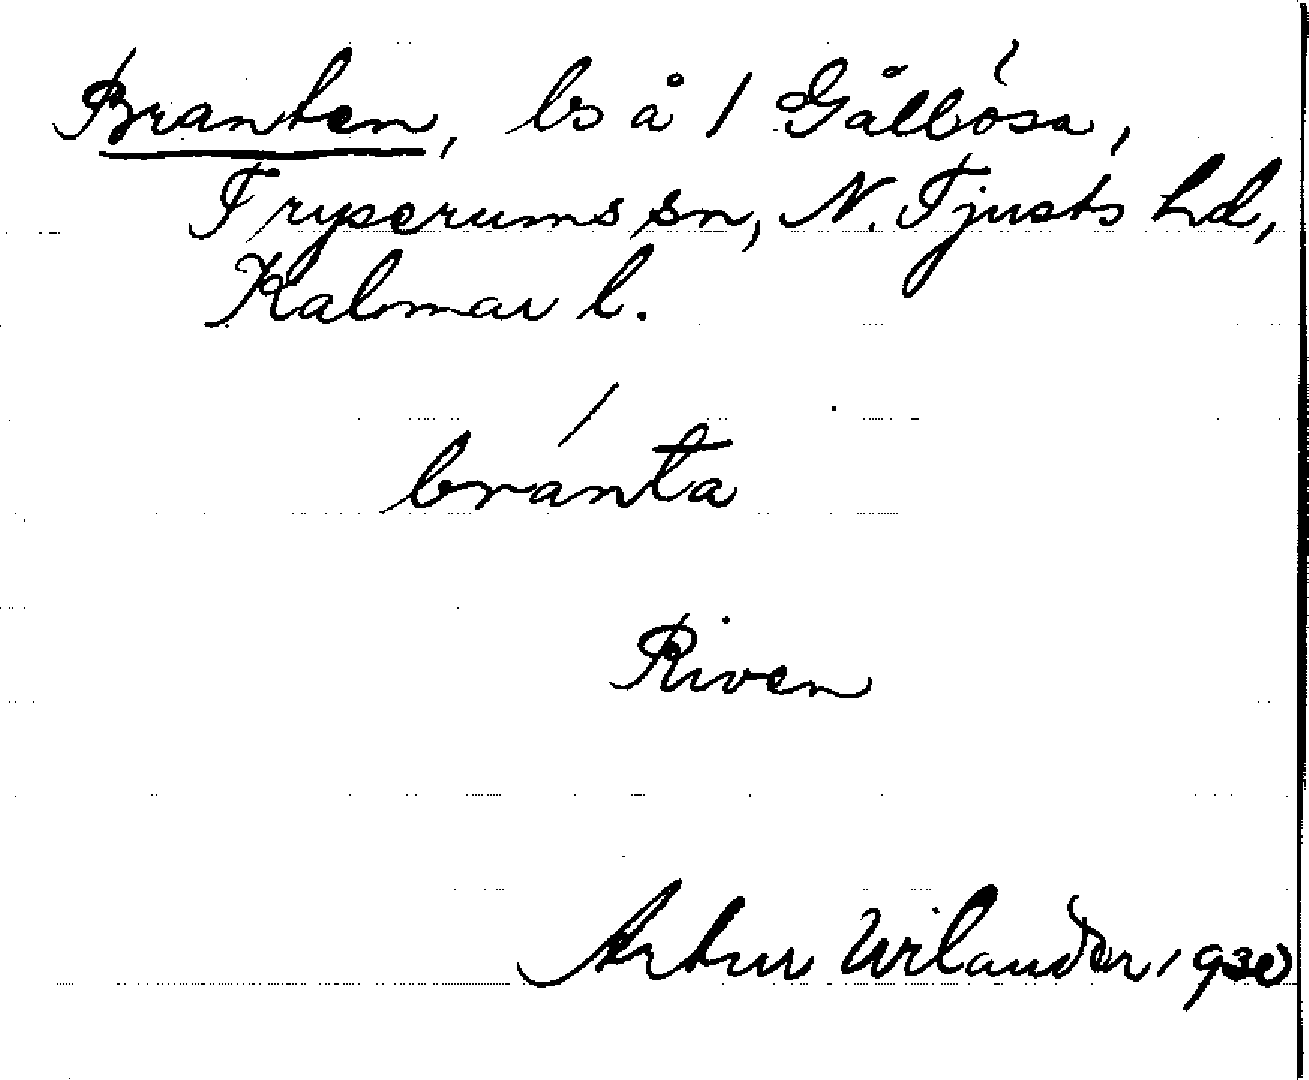 Branten, ls å 1 Gållósa,
Tryserums sn, N. Tjusts hd,
Kalmar l.
bránta
Riven
Artur Wilander 1930